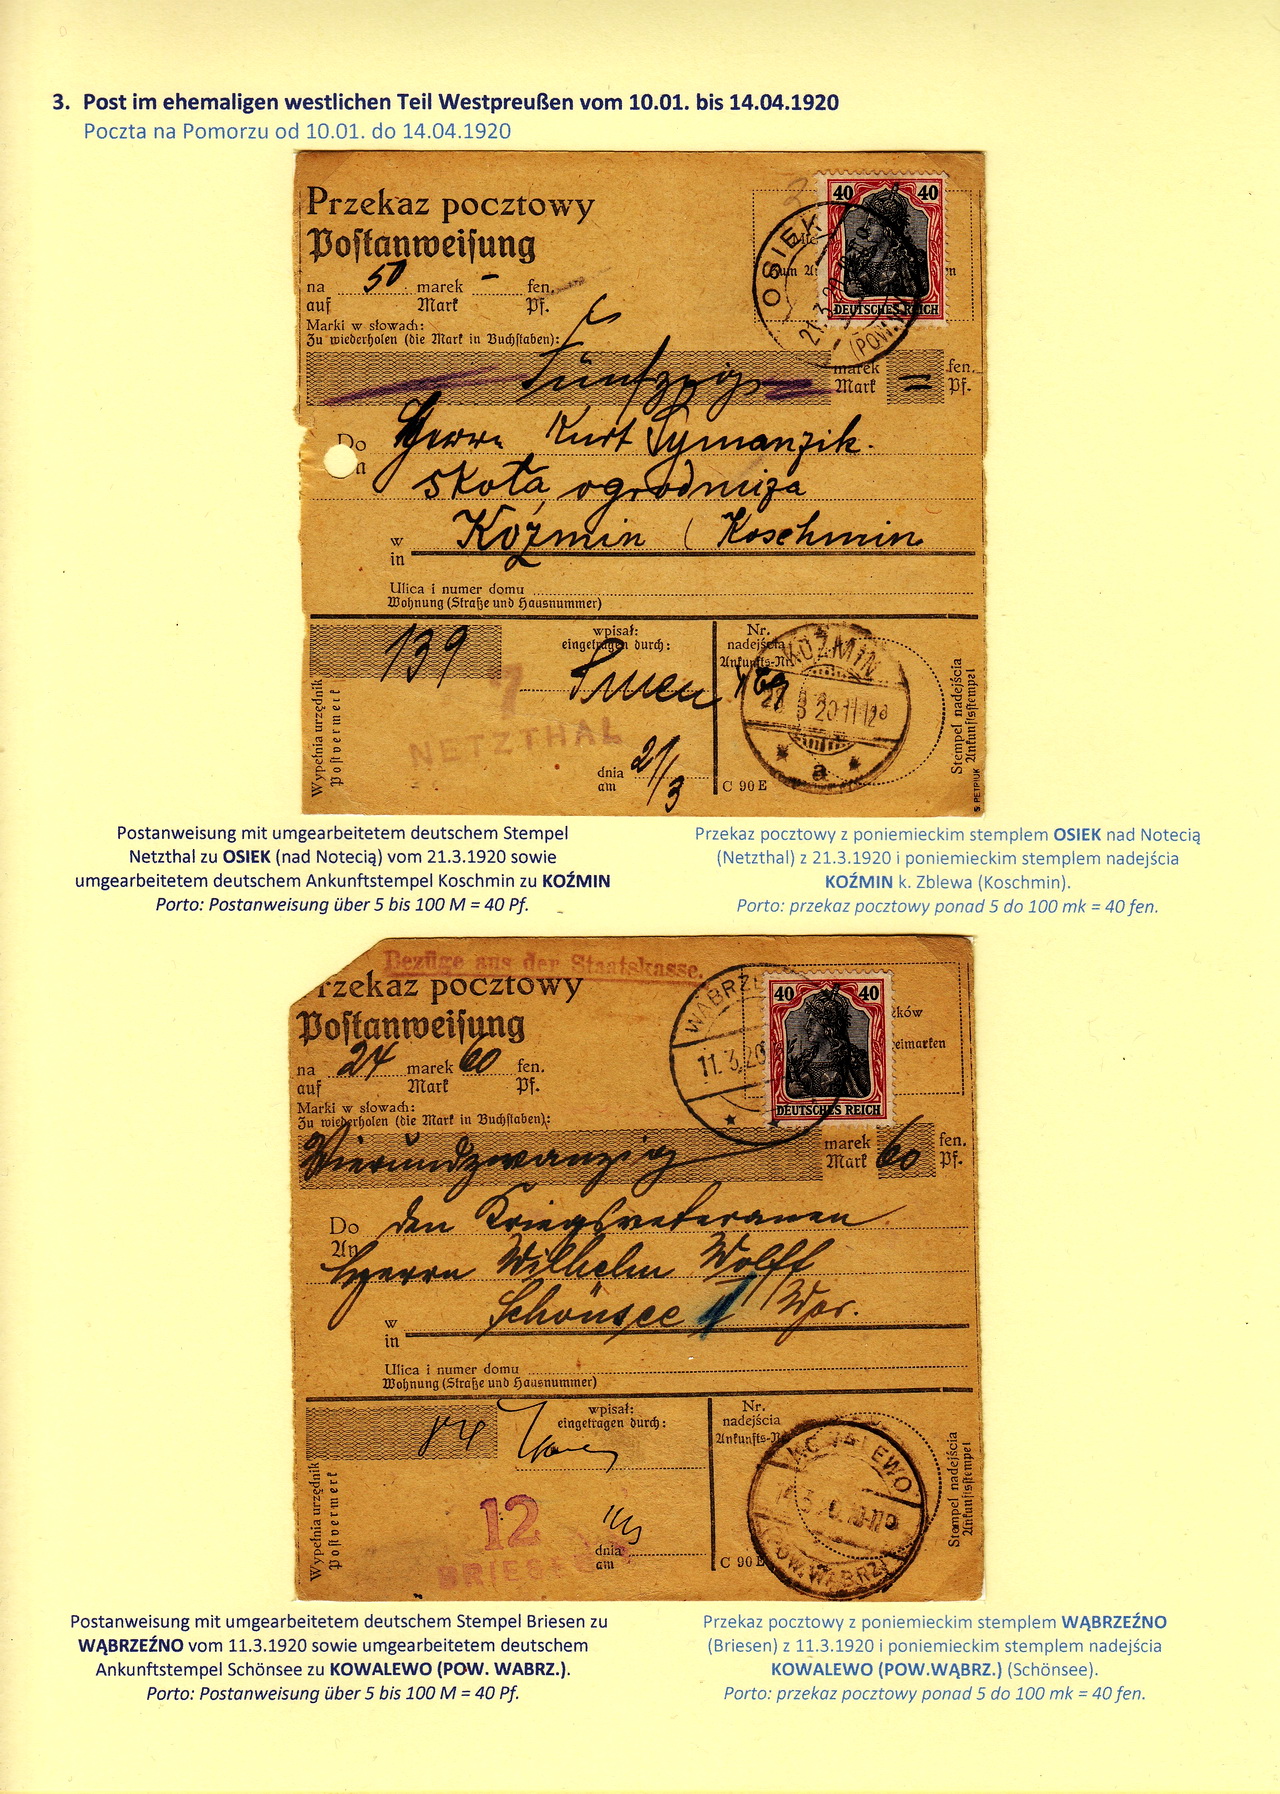 3. Post im ehemaligen westlichen Teil Westpreußen vom 10.01. bis 14.04.1920
Poczta na Pomorzu od 10.01. do 14.04.1920
Przekaz pocztowy
Postanweisung
na 50 marek - fen.
auf Mark Pf.
Marki w słowach:
Zu wiederholen (die Mark in Buchstaben):
40 40
DEUTSCHES REICH
OSIEK
21.3.20
(POW.
Fünfzig marek = fen.
Mark Pf.
Do Herrn Kurt Symanzik.
skoła ogrodniza
w Koźmin (Koschmin
in
Ulica i numer domu
Wohnung (Straße und Hausnummer)
139
wpisał:
eingetragen durch:
Nr.
nadejścia
Ankunfts-Nr.
KOŹMIN
3 20.11-12
a
7
NETZTHAL
dnia 21/3
am
C 90 E
Wypełnia urzędnik
Postvermerk
Stempel nadejścia
Ankunftsstempel
Postanweisung mit umgearbeitetem deutschem Stempel
Netzthal zu OSIEK (nad Notecią) vom 21.3.1920 sowie
umgearbeitetem deutschem Ankunftstempel Koschmin zu KOŹMIN
Porto: Postanweisung über 5 bis 100 M = 40 Pf.
Przekaz pocztowy z poniemieckim stemplem OSIEK nad Notecią
(Netzthal) z 21.3.1920 i poniemieckim stemplem nadejścia
KOŹMIN k. Zblewa (Koschmin).
Porto: przekaz pocztowy ponad 5 do 100 mk = 40 fen.
Bezüge aus der Staatskasse.
rzekaz pocztowy
Postanweisung
na 24 marek 60 fen.
auf Mark Pf.
Marki w słowach:
Zu wiederholen (die Mark in Buchstaben):
WĄBRZE
11.3.20
40 40
DEUTSCHES REICH
Vierundzwanzig marek 60 fen.
Mark Pf.
Do den Kriegsveteranen
An
Herrn Wilhelm Wolff
w Schönsee /Wpr.
in
Ulica i numer domu
Wohnung (Straße und Hausnummer)
wpisał:
eingetragen durch:
Nr.
nadejścia
Ankunfts-Nr.
KOWALEWO
(POW.WĄBRZ
12
BRIESE
dnia
am
C 90 E
Wypełnia urzędnik
Postvermerk
Stempel nadejścia
Ankunftsstempel
Postanweisung mit umgearbeitetem deutschem Stempel Briesen zu
WĄBRZEŹNO vom 11.3.1920 sowie umgearbeitetem deutschem
Ankunftstempel Schönsee zu KOWALEWO (POW. WABRZ.).
Porto: Postanweisung über 5 bis 100 M = 40 Pf.
Przekaz pocztowy z poniemieckim stemplem WĄBRZEŹNO
(Briesen) z 11.3.1920 i poniemieckim stemplem nadejścia
KOWALEWO (POW.WĄBRZ.) (Schönsee).
Porto: przekaz pocztowy ponad 5 do 100 mk = 40 fen.